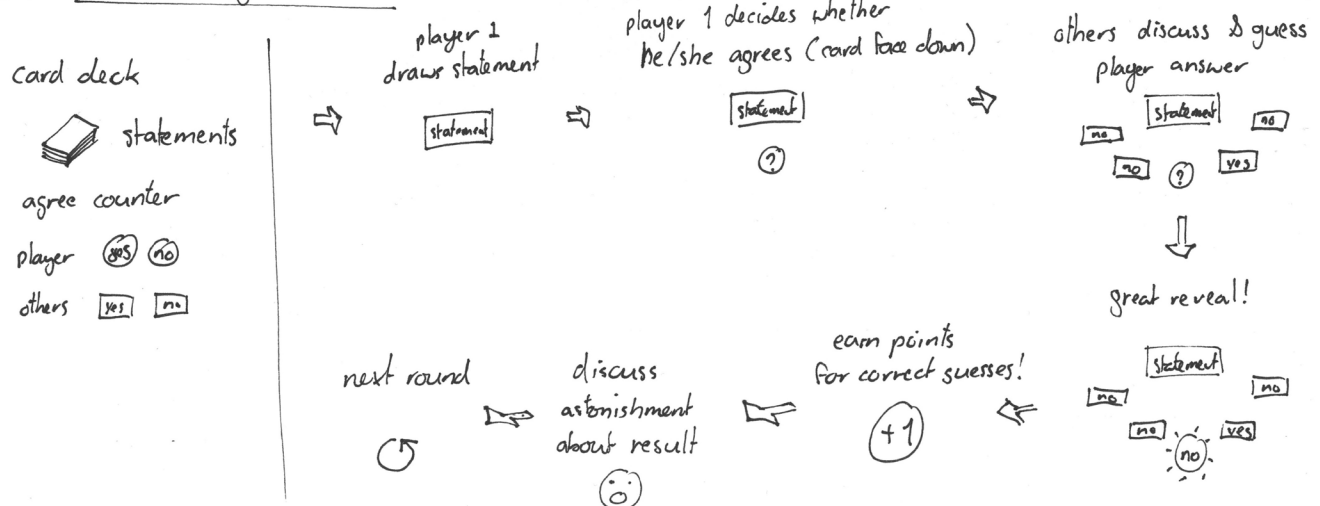 card deck
statements
agree counter
player yes no
others yes no
player 1
draws statement
statement
player 1 decides whether
he/she agrees (card face down)
statement
?
others discuss & guess
player answer
statement
no
no
no
yes
?
great reveal!
statement
no
no
no
yes
no
earn points
for correct guesses!
+1
discuss
astonishment
about result
next round